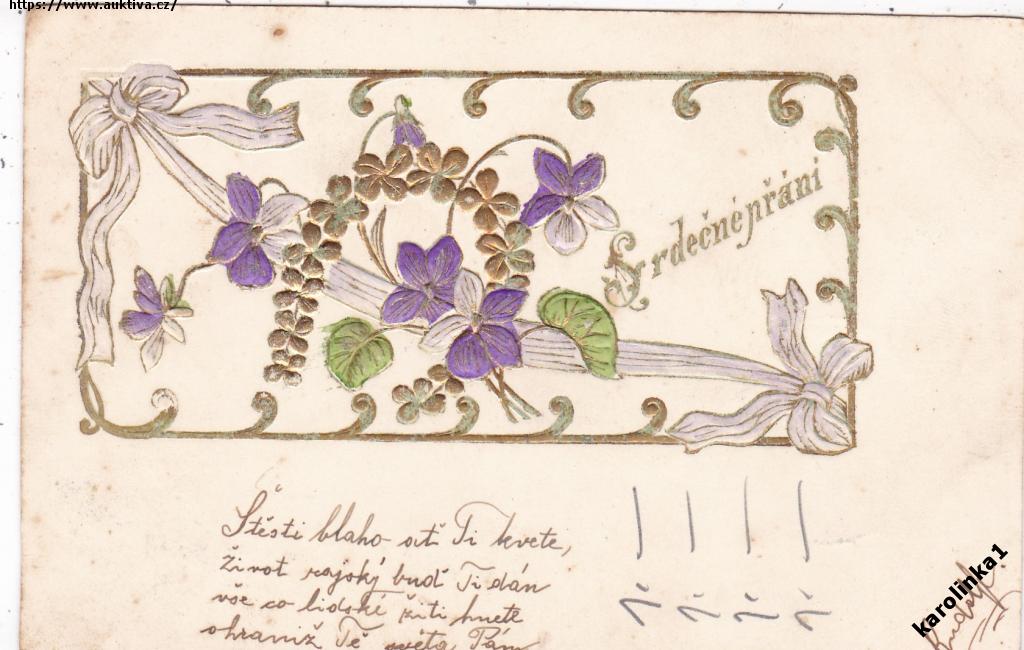 https://www.auktiva.cz/
Srdečné přání
Štěsti blaho ať Ti kvete,
Život rajský buď Ti dán
vše co lidské žití hnětě
ohraniž Tě světa Pán
Rudolf
karolinka1